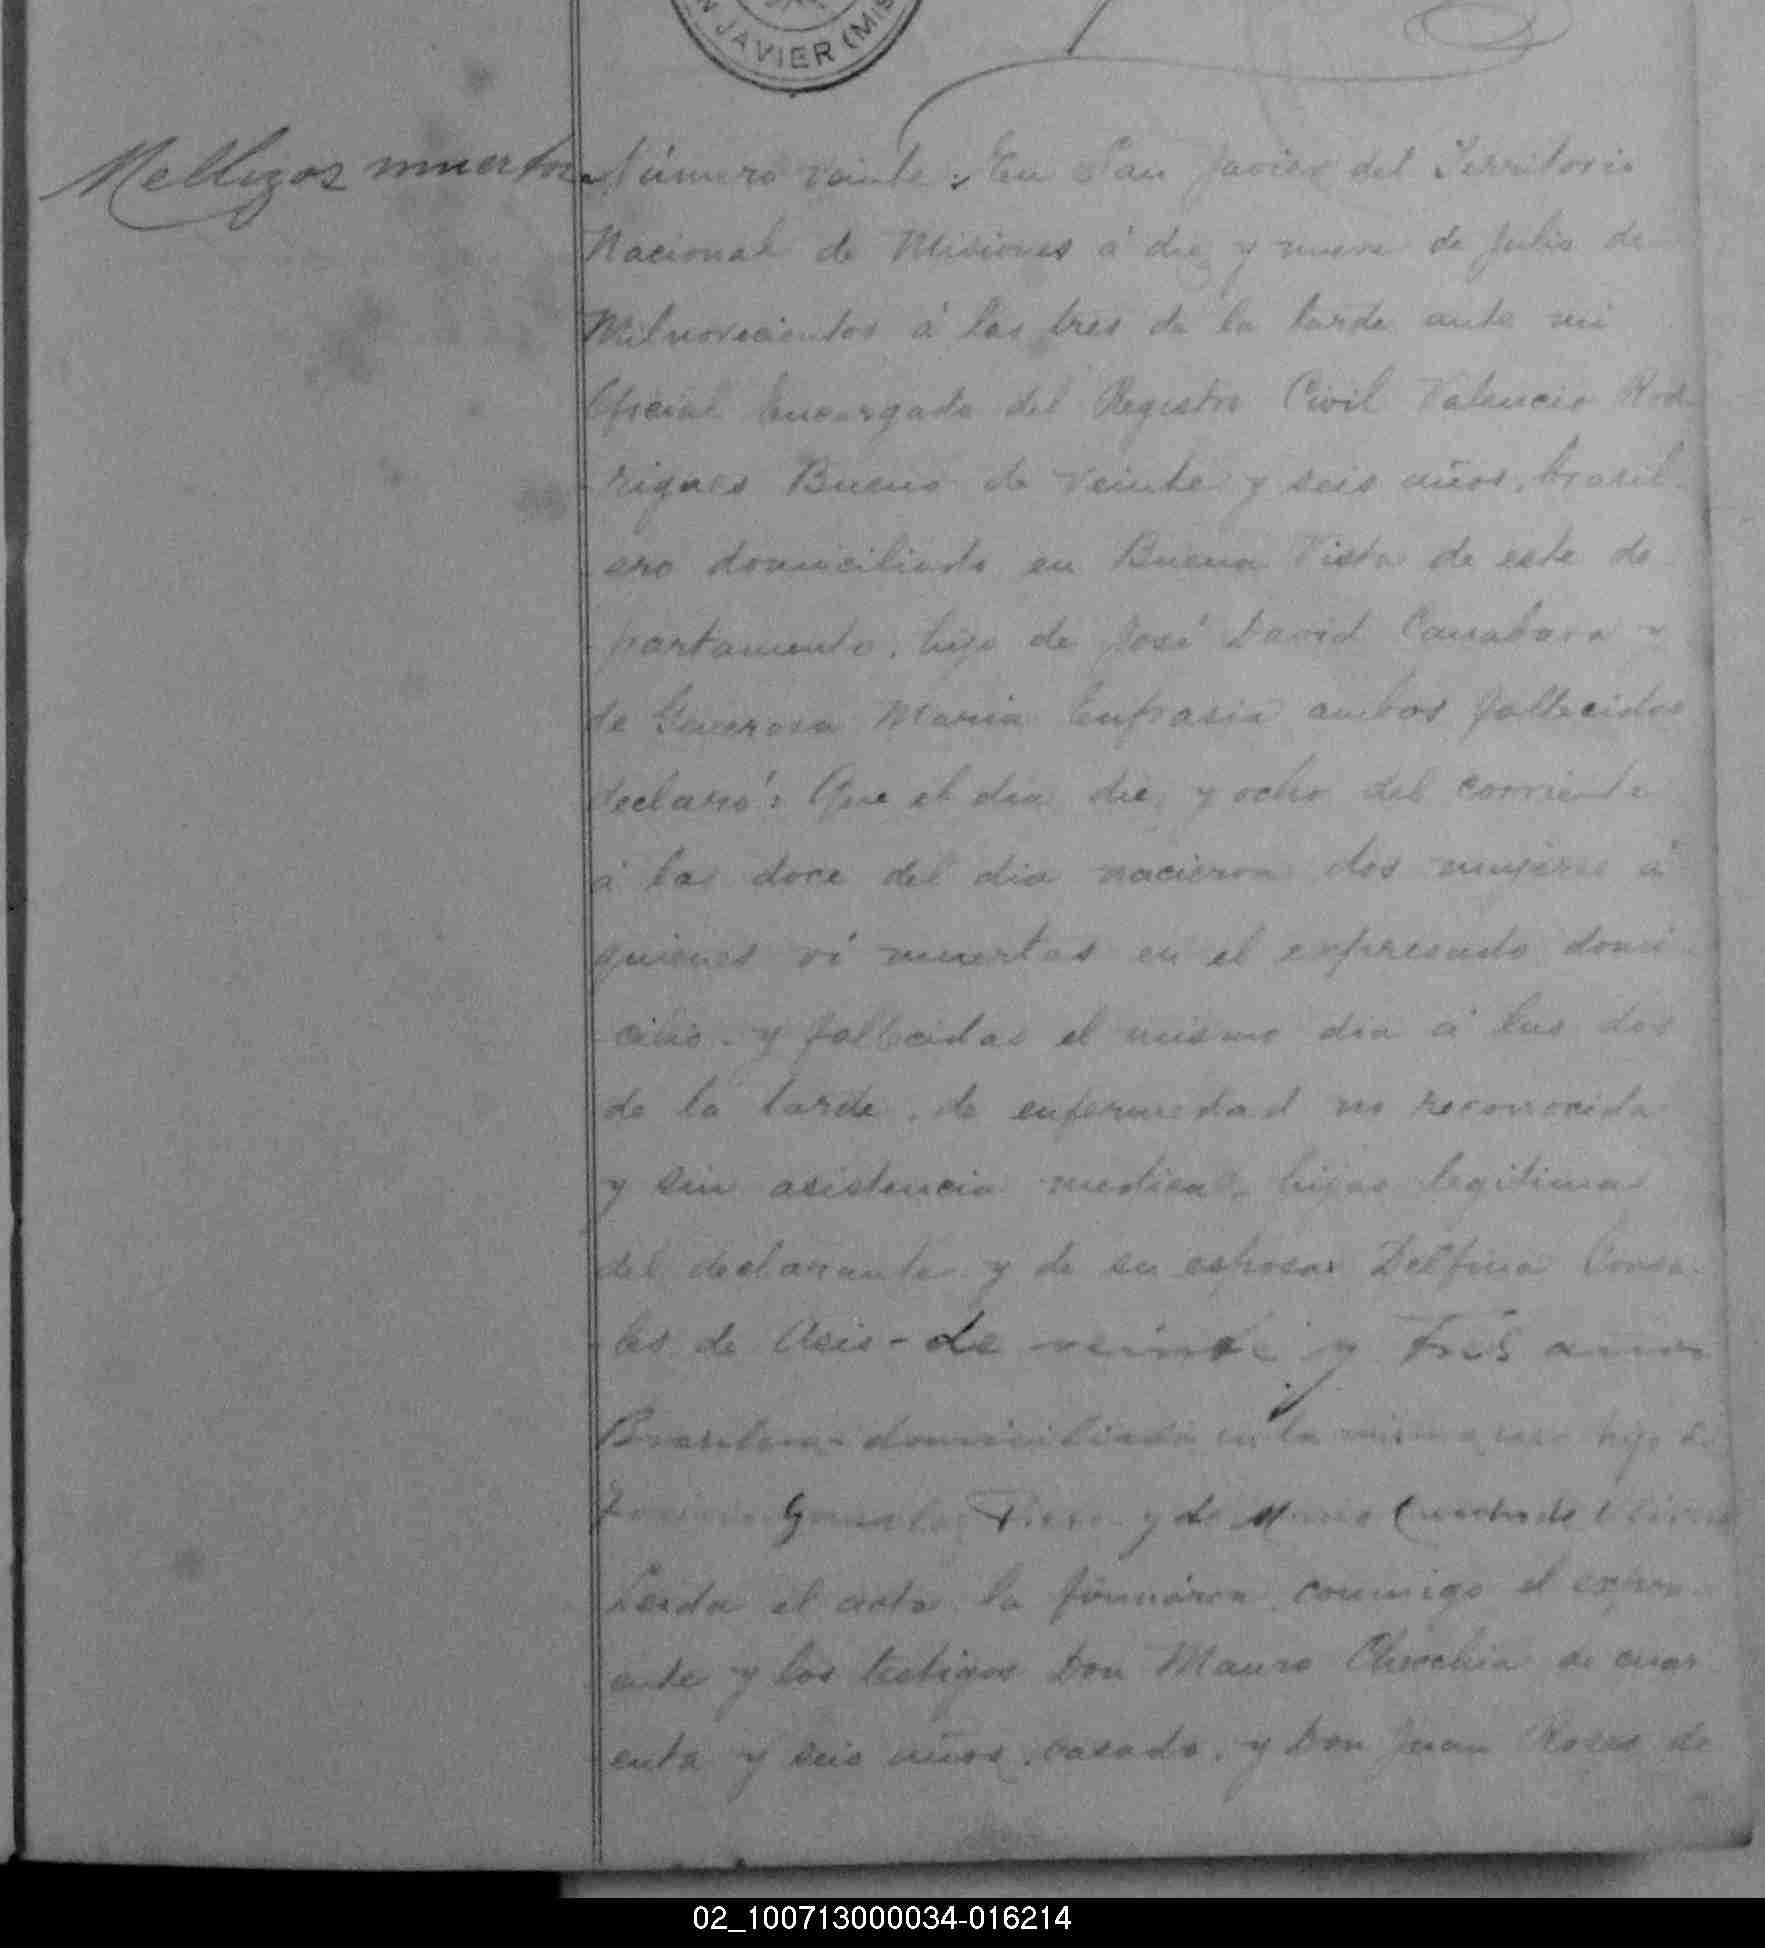 N JAVIER (MIS
Mellizos muertos
Número veinte: En San Javier del Territorio
Nacional de Misiones á diez y nueve de Julio de
Milnovecientos á las tres de la tarde ante mi
Oficial Encargado del Registro Civil Valencio Rod-
rigues Bueno de veinte y seis años, brasil-
ero domiciliado en Buena Vista de este de-
partamento, hijo de José David Canabara y
de Generosa Maria Eufrasia ambos fallecidos
declaró: Que el dia diez y ocho del corriente
á las doce del dia nacieron dos mujeres á
quienes ví muertas en el expresado domi-
cilio y fallecidas el mismo dia á las dos
de la tarde, de enfermedad no reconocida
y sin asistencia medica, hijas legitimas
del declarante y de su esposa Delfina Gonsa-
les de Asis - de veinte y tres años
Brasilera - domiciliada en la misma casa hija de
y de Maria
Leida el acta la firmáron conmigo el expon-
ente y los testigos Don Mauro Chicchia de cuar
enta y seis años, casado, y Don Juan Roses de
02_100713000034-016214